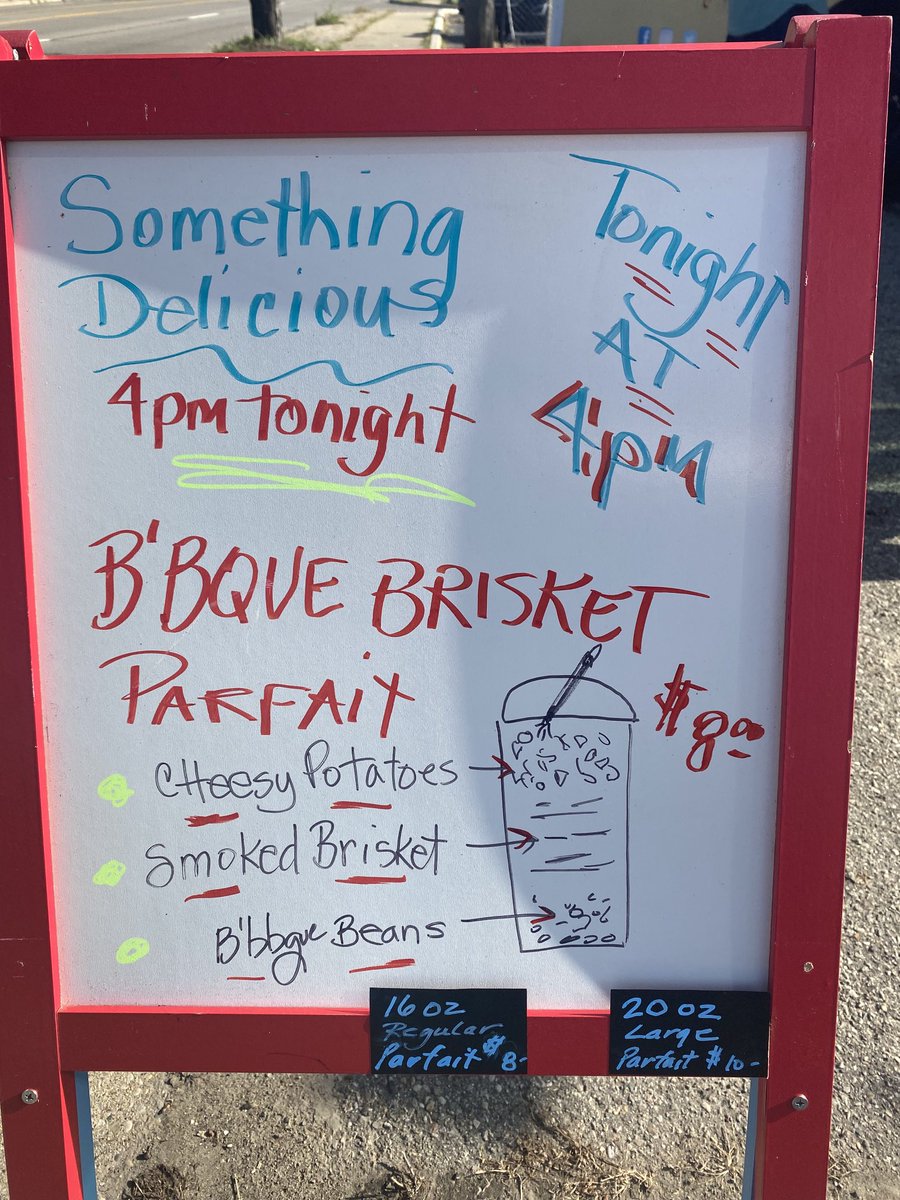 Something
Delicious
4pm tonight
Tonight
AT
4pm
B'BQUE BRISKET
PARFAIT
$8.00
CHeesy Potatoes
Smoked Brisket
B'bbque Beans
16 oz
Regular
Parfait $8-
20 oz
Large
Parfait $10-